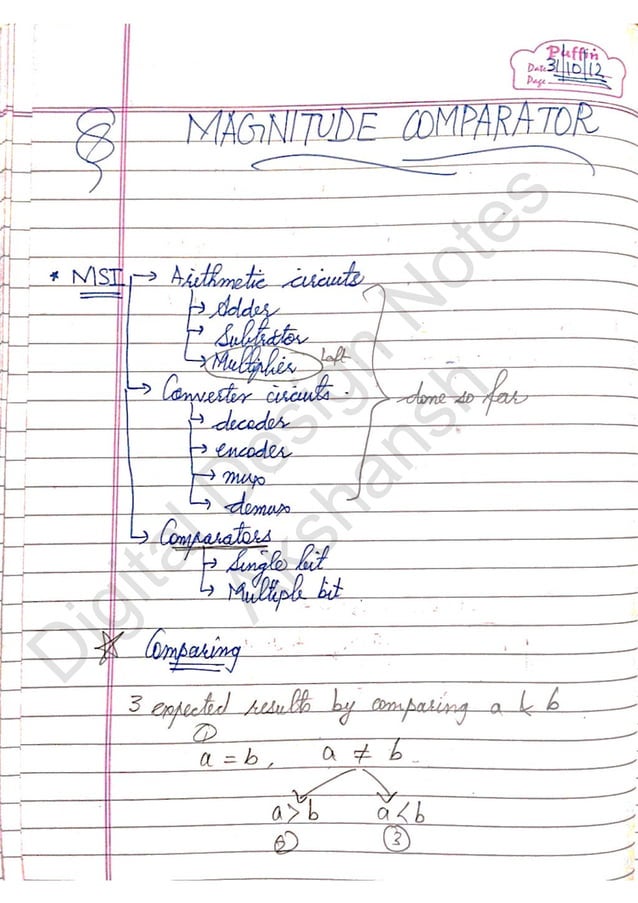 Puffin
Date 31/10/12
Page
MAGNITUDE COMPARATOR
* MSI → Arithmetic circuits
→ Adder
→ Subtrator
→ Multiplier Left
→ Converter circuits.
done so far
→ decoder
→ encoder
→ mux
→ demux
→ Comparators
→ Single bit
→ Multiple bit
Comparing
3 expected results by comparing a & b
①
a = b, a ≠ b
a>b a<b
② ③
Digital Design Notes
Akshansh